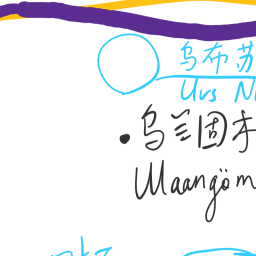 乌布苏
Uvs N
乌兰固木
Ulaangom